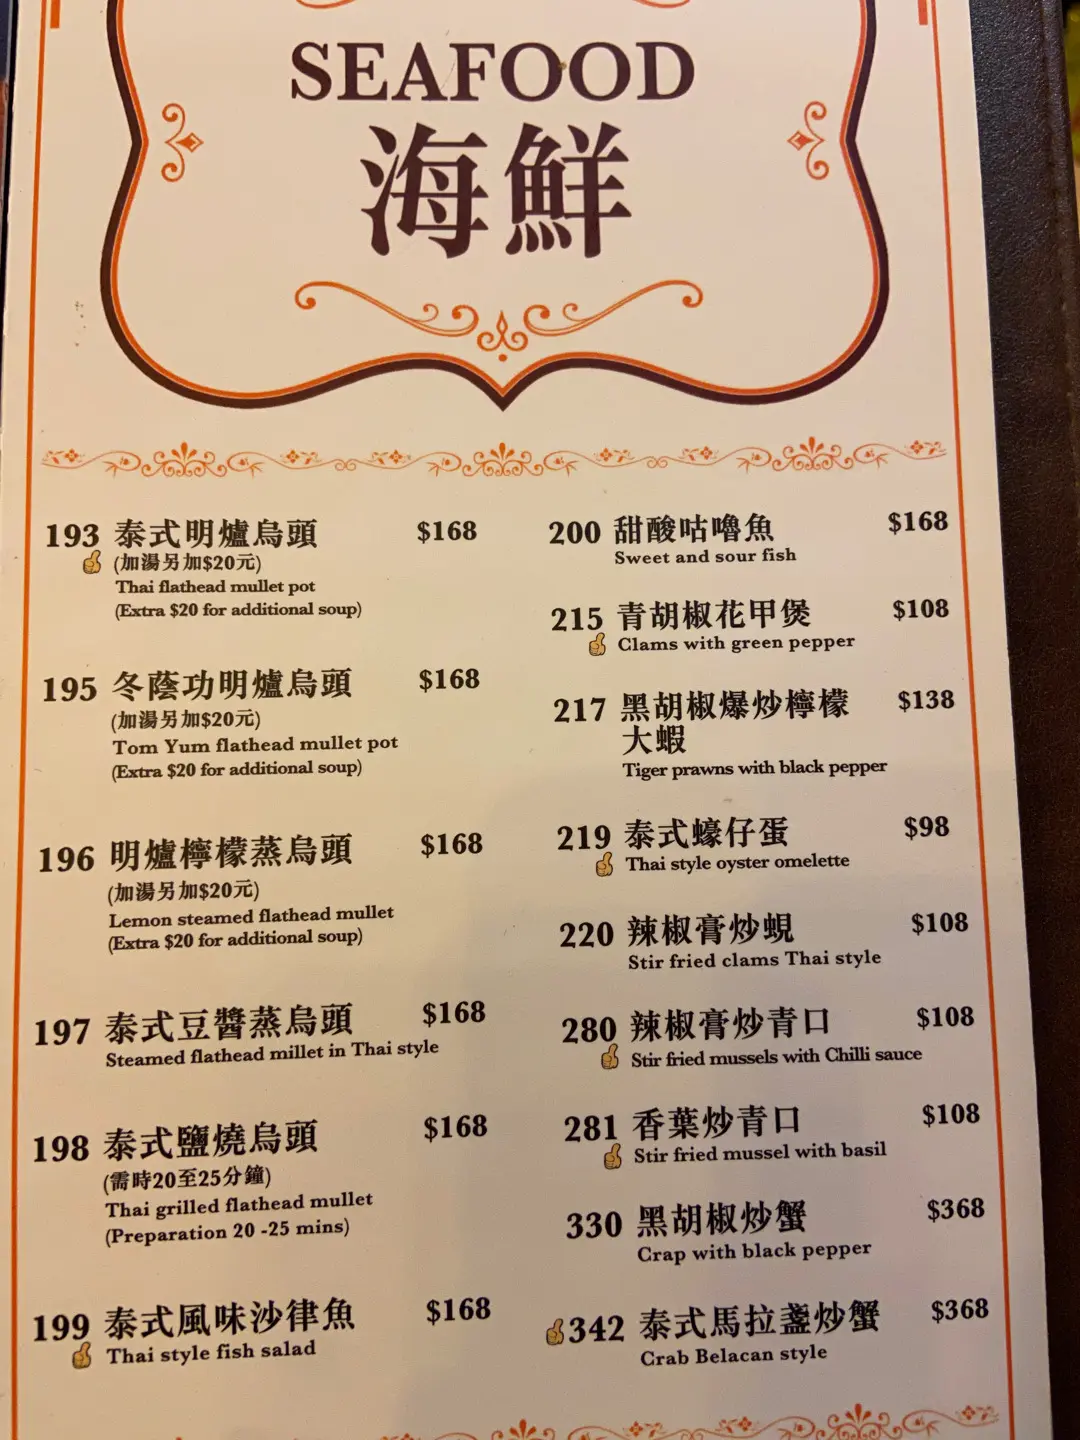 SEAFOOD
海鮮
193 泰式明爐烏頭 $168
(加湯另加$20元)
Thai flathead mullet pot
(Extra $20 for additional soup)
195 冬蔭功明爐烏頭 $168
(加湯另加$20元)
Tom Yum flathead mullet pot
(Extra $20 for additional soup)
196 明爐檸檬蒸烏頭 $168
(加湯另加$20元)
Lemon steamed flathead mullet
(Extra $20 for additional soup)
197 泰式豆醬蒸烏頭 $168
Steamed flathead millet in Thai style
198 泰式鹽燒烏頭 $168
(需時20至25分鐘)
Thai grilled flathead mullet
(Preparation 20 -25 mins)
199 泰式風味沙律魚 $168
Thai style fish salad
200 甜酸咕嚕魚 $168
Sweet and sour fish
215 青胡椒花甲煲 $108
Clams with green pepper
217 黑胡椒爆炒檸檬 $138
大蝦
Tiger prawns with black pepper
219 泰式蠔仔蛋 $98
Thai style oyster omelette
220 辣椒膏炒蜆 $108
Stir fried clams Thai style
280 辣椒膏炒青口 $108
Stir fried mussels with Chilli sauce
281 香葉炒青口 $108
Stir fried mussel with basil
330 黑胡椒炒蟹 $368
Crap with black pepper
342 泰式馬拉盞炒蟹 $368
Crab Belacan style